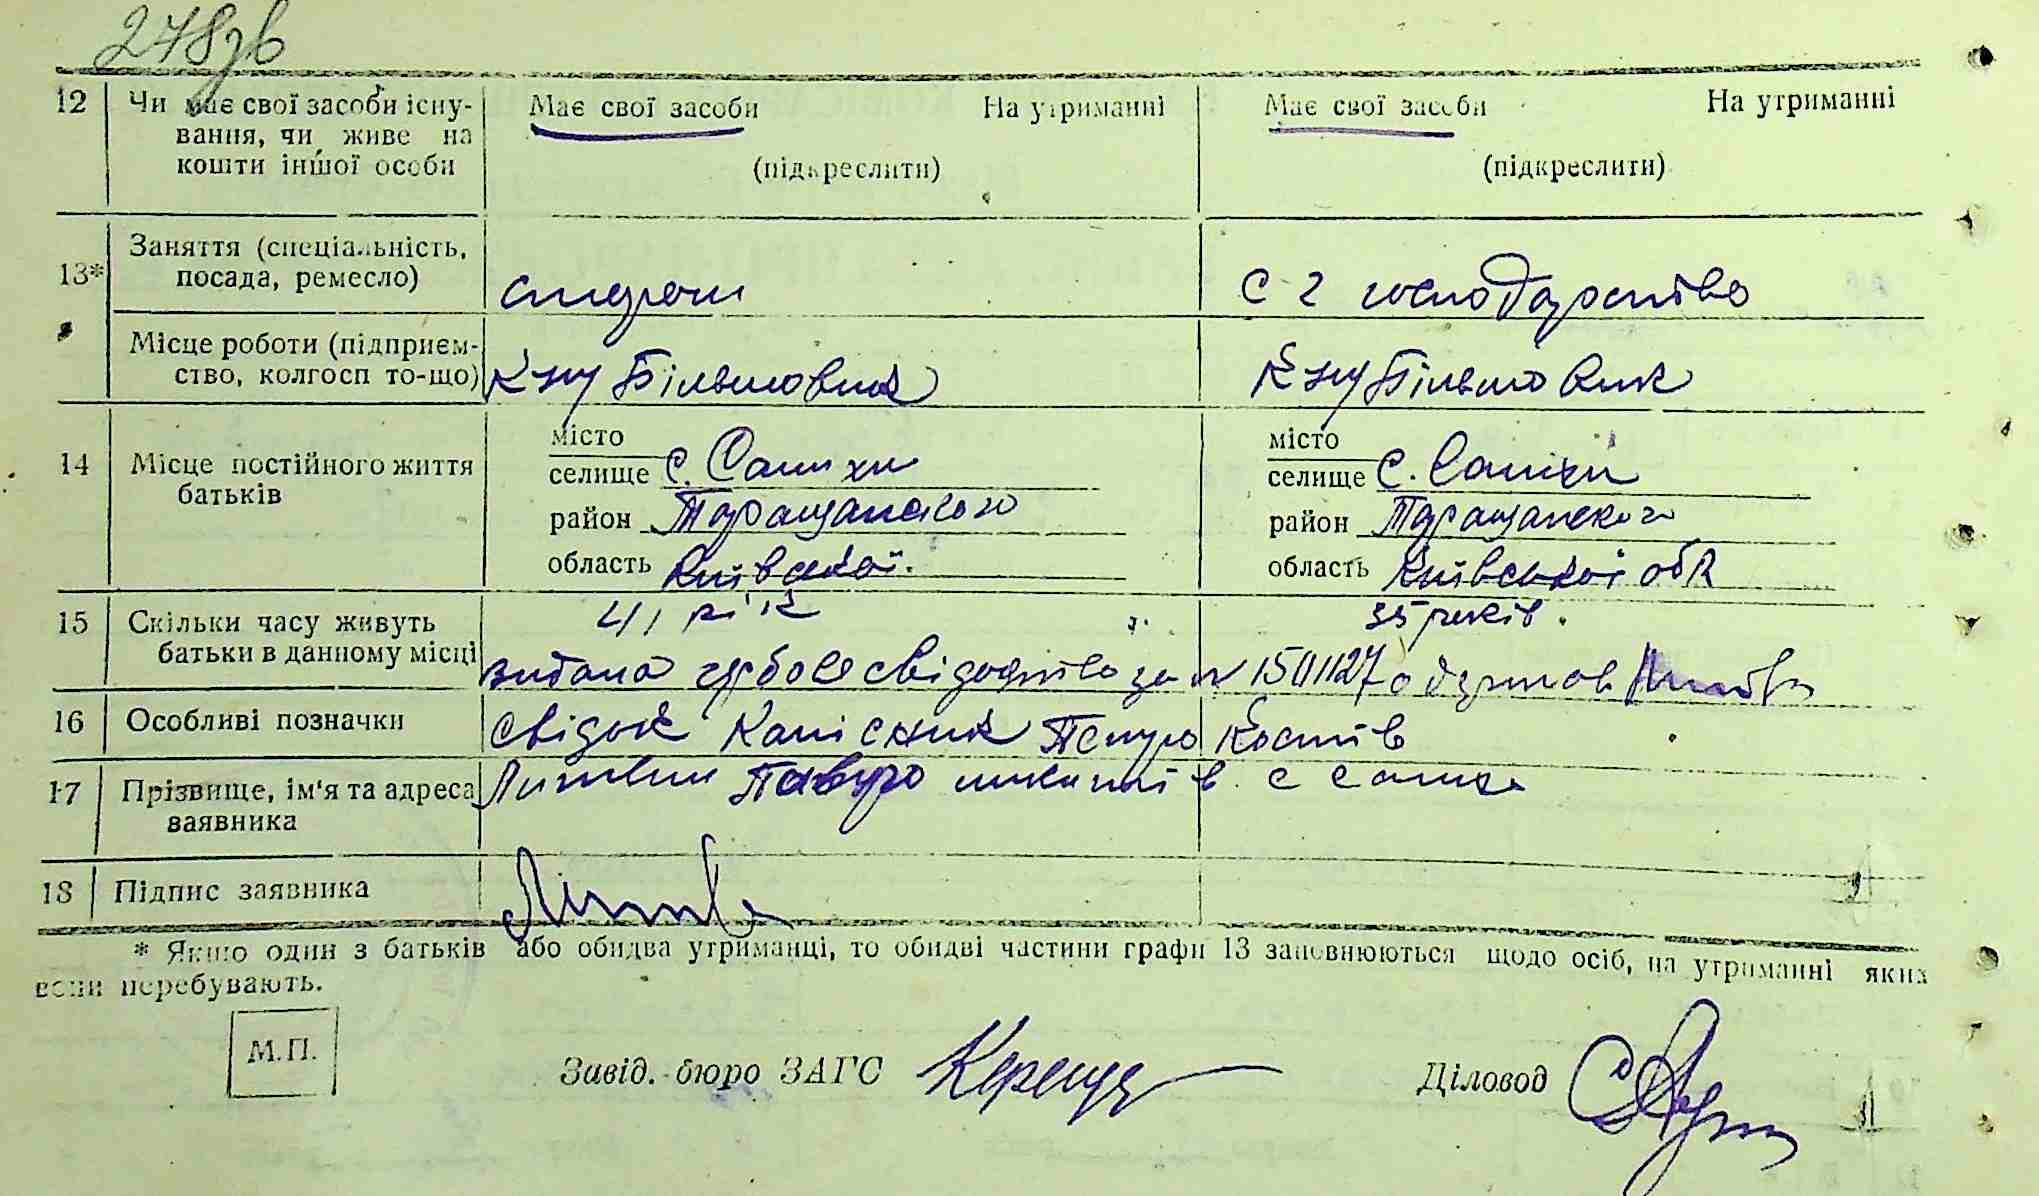 278зв
12 Чи має свої засоби існу-
вання, чи живе на
кошти іншої особи
Має свої засоби На утриманні
(підкреслити)
Має свої засоби На утриманні
(підкреслити)
13* Заняття (спеціальність,
посада, ремесло)
с г господарство
Місце роботи (підприєм-
ство, колгосп то-що)
Більшовик
Більшовик
14 Місце постійного життя
батьків
місто
селище с.
район Таращанського
область Київської.
місто
селище с.
район Таращанського
область Київської обл
15 Скільки часу живуть
батьки в данному місці
41 рік
35 років.
видана свідоцтво за № 1501127
16 Особливі позначки
свідок Колісник Петро Костів
17 Прізвище, ім'я та адреса
заявника
Литвин Павло микитів с
18 Підпис заявника
* Якщо один з батьків або обидва утриманці, то обидві частини графи 13 заповнюються щодо осіб, на утриманні яких
вони перебувають.
М.П.
Завід. бюро ЗАГС
Діловод